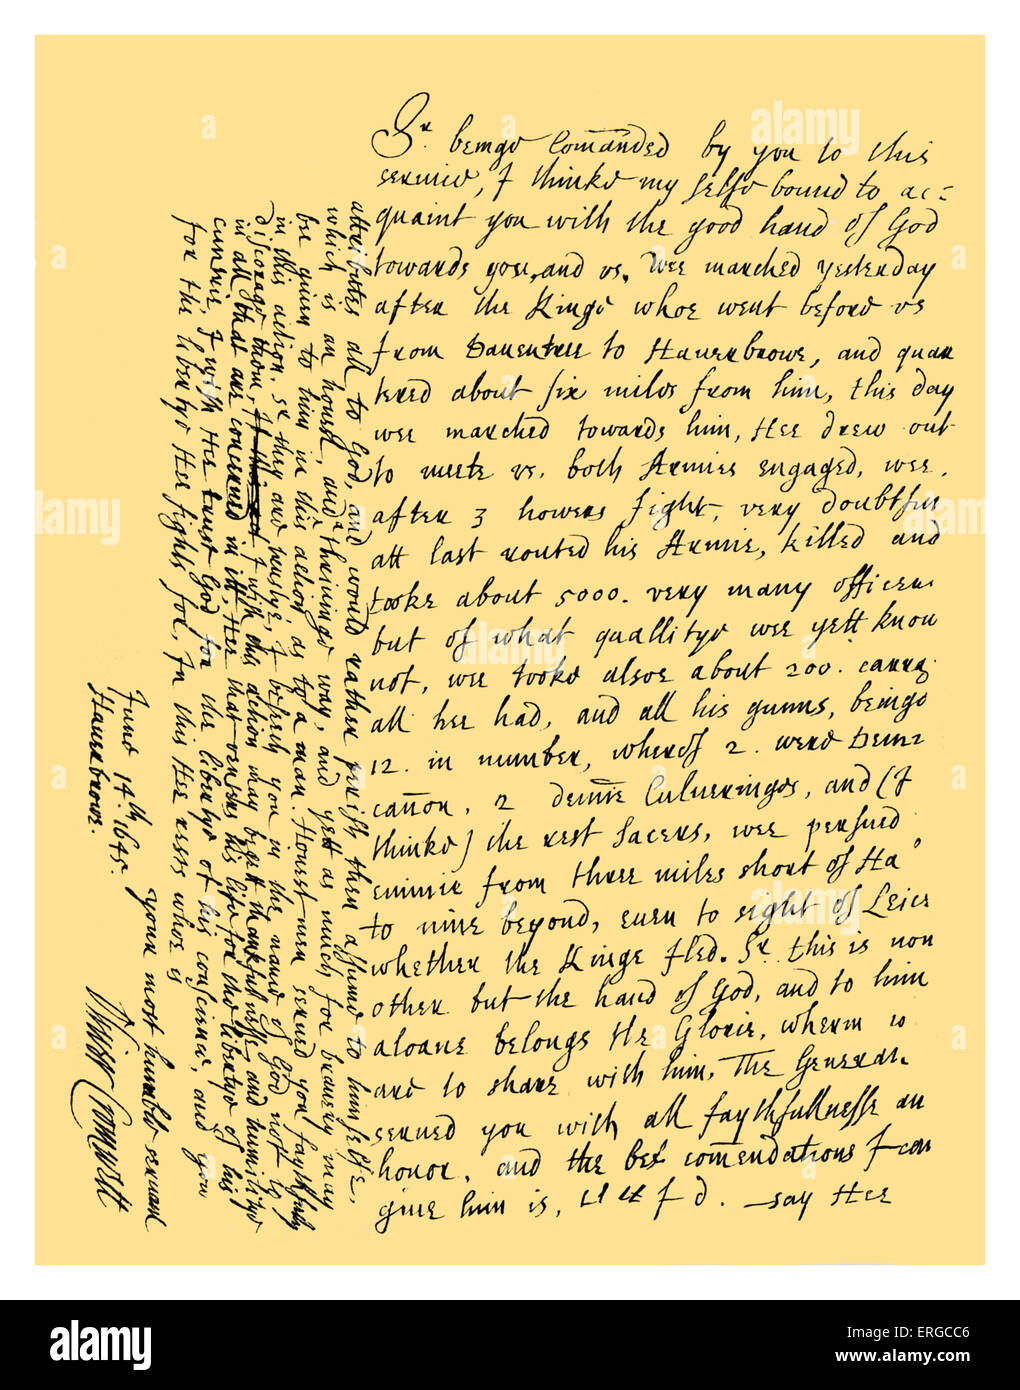 Sr. beinge Comanded by you to this
service, I thinke my selfe bound to ac=
quaint you with the good hand of God
towards you, and vs. Wee marched yesterday
after the Kinge whoe went before vs
from Dauentree to Hauerbrowe, and quar
tered about six miles from him, this day
wee marched towards him, Hee drew out
to meete vs, both Armies engaged, wee,
after 3 howers fight, very doubtful
att last routed his Armie, killed and
tooke about 5000. very many officers
but of what quallitye wee yett know
not, wee tooke alsoe about 200. carrag
all hee had, and all his gunns, beinge
12. in number, wherof 2. were Demie
canon, 2 demie Culveringes, and (I
thinke) the rest Sacers, wee persued
enimie from three miles short of Ha
to nine beyond, euen to sight of Leics
whether the Kinge fled. Sr. this is non
other but the hand of God, and to him
aloane belongs the Glorie, wherin
are to share with him, The General
serued you with all faythfullnesse an
honor, and the best comendations I can
giue him is, I d. say Hee
attributes all to God, and would rather perish then assume to himselfe,
which is an honest, and a thrivinge way, and yett as much for bravery may
bee giuen to him in this action, as to a man. Honest men serued you faythfully
in this action. Sr. they are trustye, I beseech you in the name of God not to
discorage them, I wish this action may begett thankfulnesse, and humilitye
in all that are concerned in itt, Hee that venters his life for the libertye of his
cuntrie, I wish Hee trust God for the libertye of his conscience, and you
for the libertye Hee fights for, In this Hee rests whoe is
your most humble servant
Oliver Cromwell
June 14th. 1645.
Hauerbrowe.
alamy
Image ID: ERGCC6
www.alamy.com